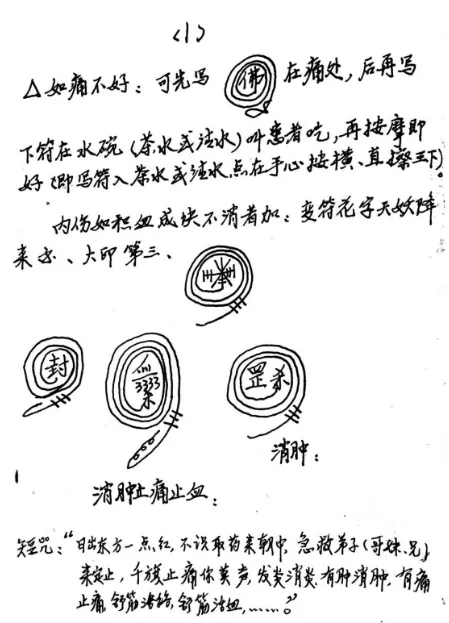 (1)
△如痛不好：可先写 佛 在痛处，后再写
下符在水碗（茶水或法水）叫患者吃，再按摩即
好（即写符入茶水或法水点在手心按横、直擦三下）。
内伤如积血成块不消者加：变符花字天妖降
来 、大印第三、
封
罡杀
消肿：
消肿止痛止血：
短咒：“日出东方一点红，不说取药来朝中，急救弟子（哥妹、兄）
来定止，千 止痛你莫声，发炎消炎，有肿消肿，有痛
止痛，舒筋活络，舒筋活血，……。”